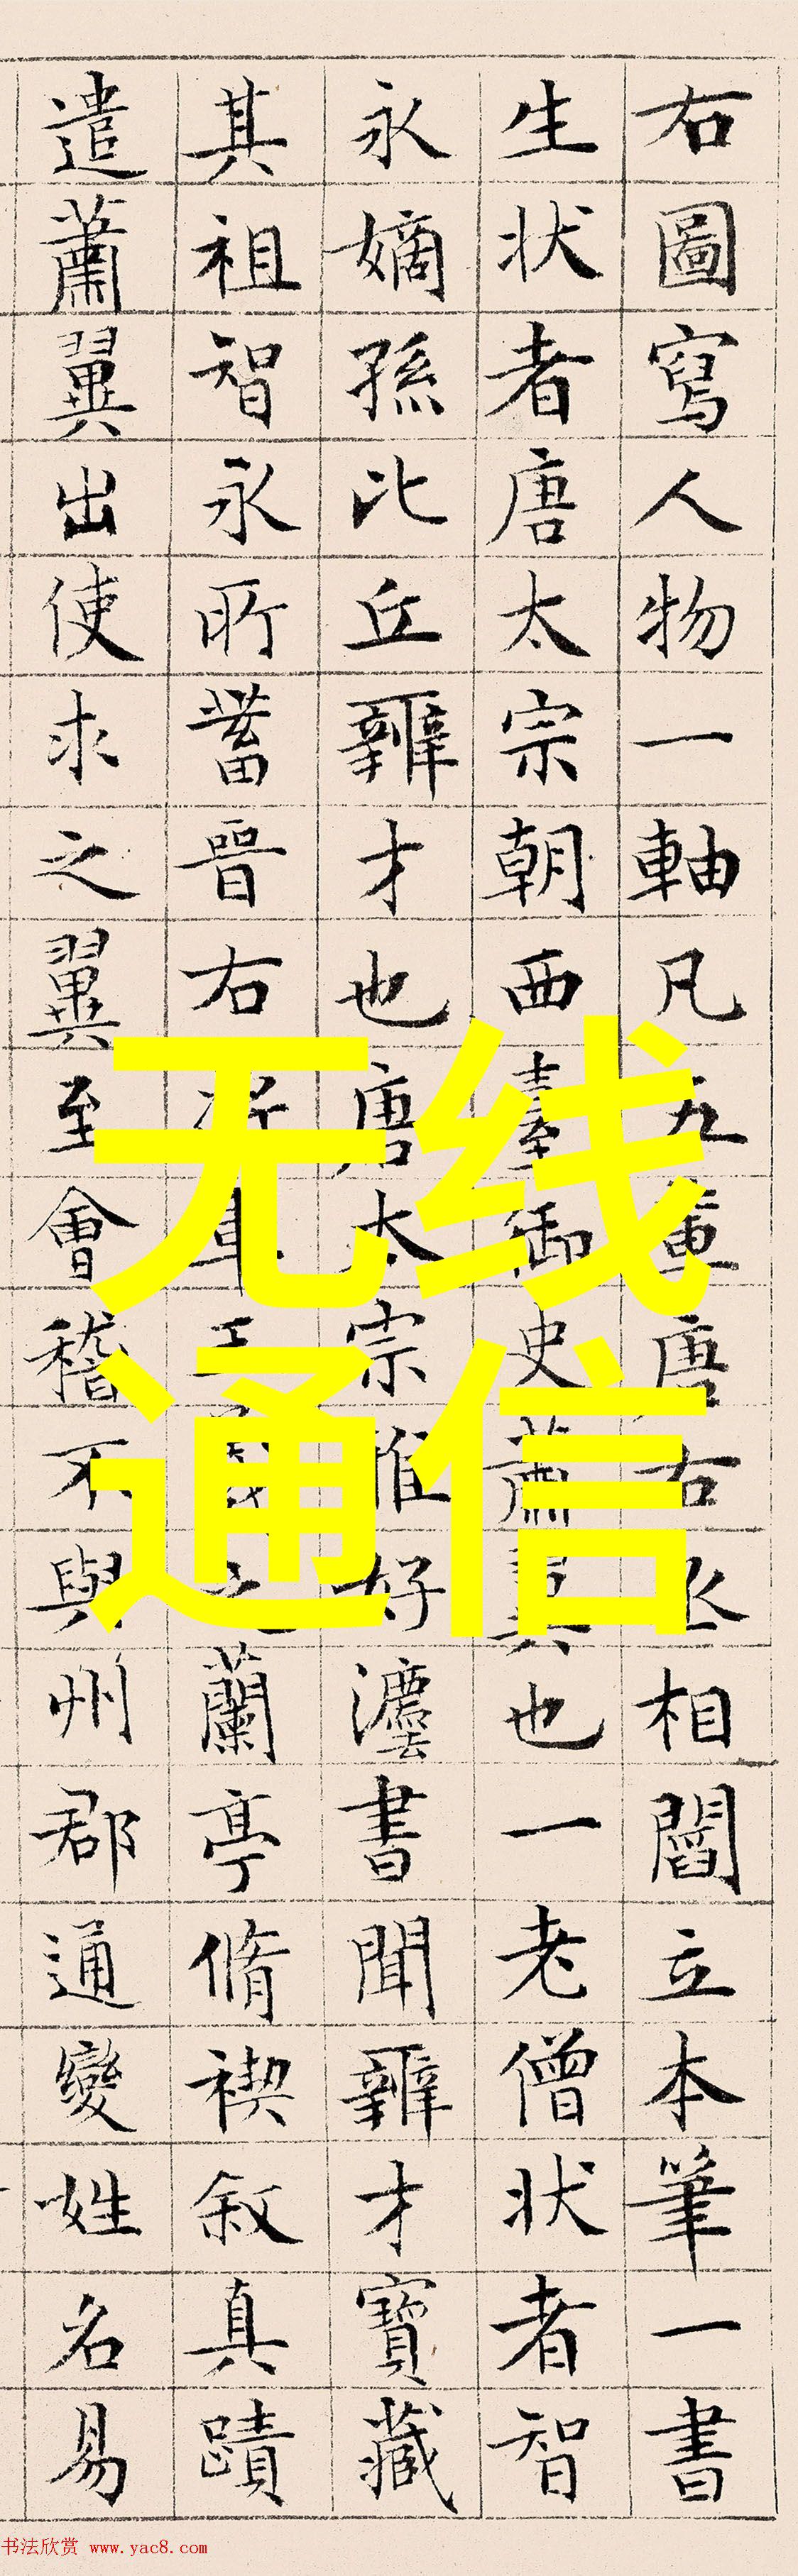 右圖寫人物一軸凡五輩唐右丞相閻立本筆一書
生状者唐太宗朝西臺御史蕭翼也一老僧状者智
永嫡孫比丘辯才也唐太宗雅好灋書聞辯才寶藏
其祖智永所蓄晉右將軍王羲之蘭亭脩禊叙真蹟
遣蕭翼出使求之翼至會稽不與州郡通變姓名易
无线
通信
书法欣赏 www.yac8.com